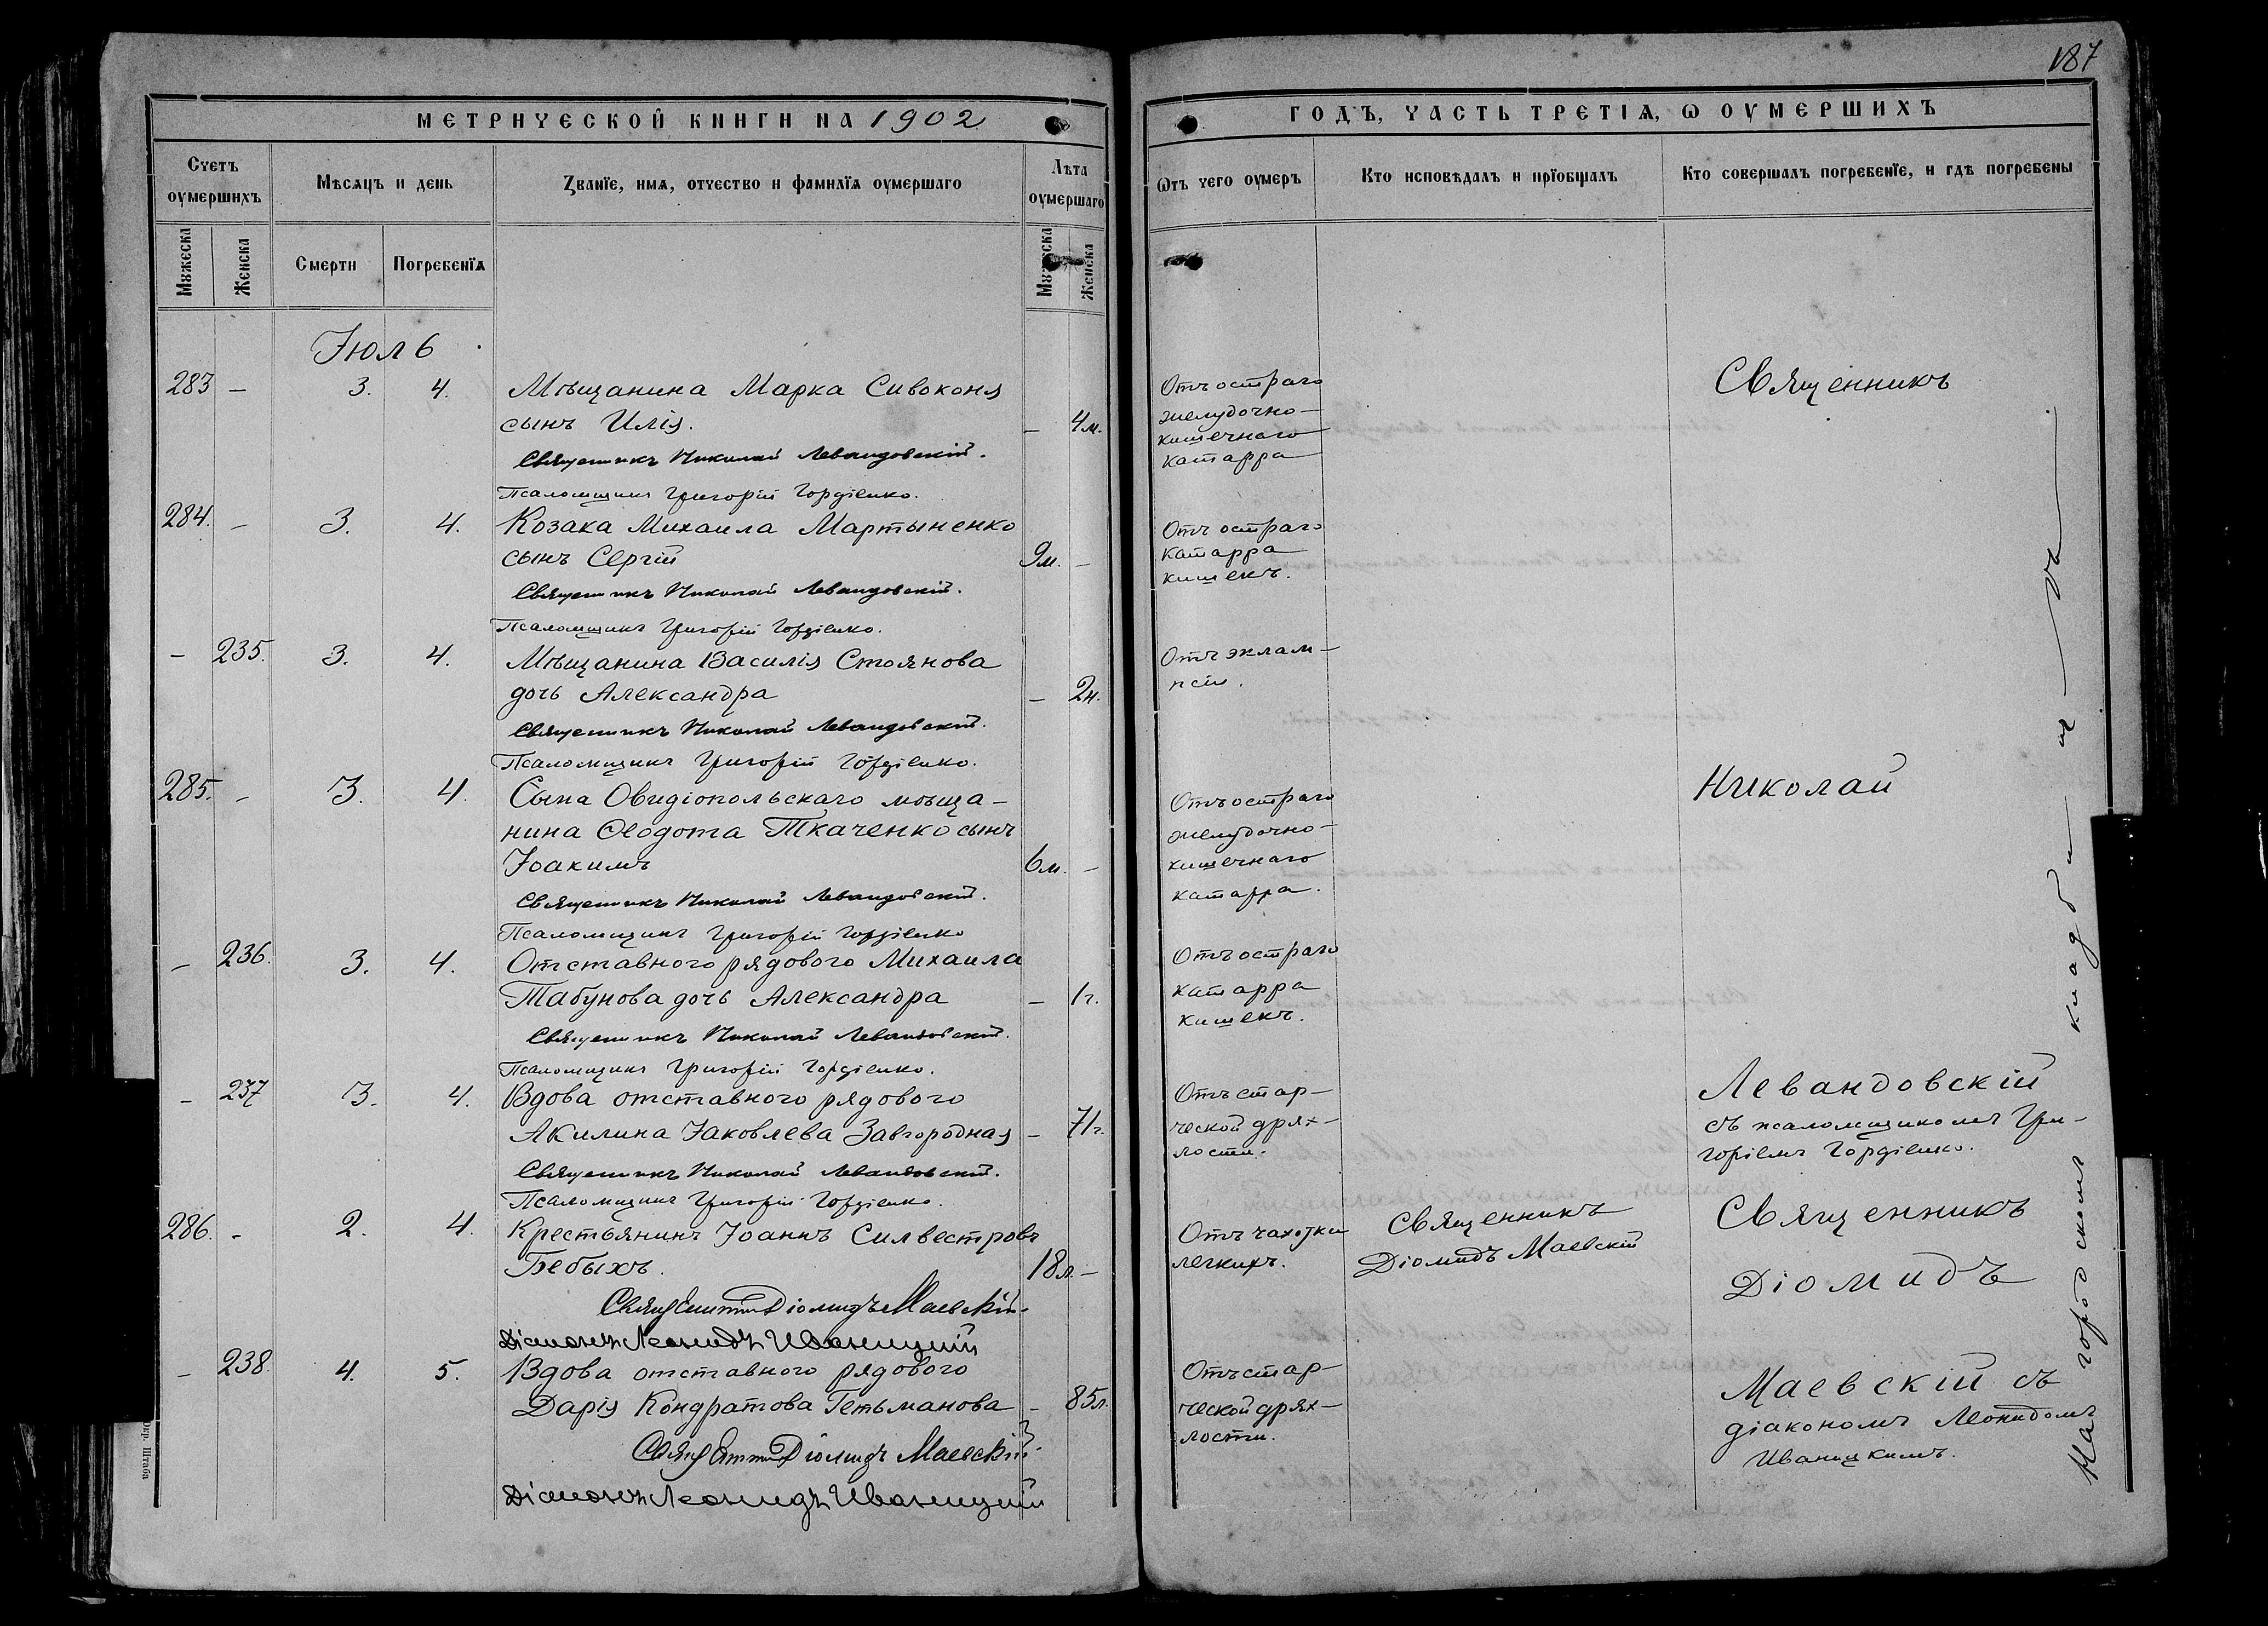 187
МЕТРИЧЕСКОЙ КНИГИ НА 1902
ГОДЪ, ЧАСТЬ ТРЕТІѦ, Ѡ ОУМЕРШИХЪ
Счетъ оумершихъ
Мѣсѧцъ и день
Званїе, имѧ, отчество и фамилїѧ оумершаго
Лѣта оумершаго
Ѿтъ чего оумеръ
Кто исповѣдалъ и прїобщалъ
Кто совершалъ погребенїе, и гдѣ погребены
Мꙋжеска
Женска
Смерти
Погребенїѧ
Мꙋжеска
Женска
Іюль
283 — 3. 4. Мѣщанина Марка Сивоконя
сынъ Илія. — 4м.
Священникъ Николай Левандовскій.
Псаломщикъ Григорій Гордіенко.
Отъ остраго
желудочно-
кишечнаго
катарра
284. — 3. 4. Козака Михаила Мартыненко
сынъ Сергій 9м. —
Священникъ Николай Левандовскій.
Псаломщикъ Григорій Гордіенко.
Отъ остраго
катарра
кишекъ.
— 235. 3. 4. Мѣщанина Василія Стоянова
дочь Александра — 2н.
Священникъ Николай Левандовскій.
Псаломщикъ Григорій Гордіенко.
Отъ эклам-
псіи.
285. — 3. 4. Сына Овидіопольскаго мѣща-
нина Ѳеодота Ткаченко сынъ
Іоакимъ 6м. —
Священникъ Николай Левандовскій.
Псаломщикъ Григорій Гордіенко
Отъ остраго
желудочно-
кишечнаго
катарра.
— 236. 3. 4. Отставного рядового Михаила
Табунова дочь Александра — 1г.
Священникъ Николай Левандовскій.
Псаломщикъ Григорій Гордіенко.
Отъ остраго
катарра
кишекъ.
— 237 3. 4. Вдова отставного рядового
Акилина Іаковлева Завгородная — 71г.
Священникъ Николай Левандовскій.
Псаломщикъ Григорій Гордіенко.
Отъ стар-
ческой дрях-
лости.
Священникъ
Николай
Левандовскій
съ псаломщикомъ Гри-
горіемъ Гордіенко.
286. — 2. 4. Крестьянинъ Іоаннъ Силвестровъ
Бебыхъ. 18л. —
Священникъ Діомидъ Маевскій
Діаконъ Леонидъ Иваницкій
Отъ чахотки
легкихъ.
Священникъ
Діомидъ Маевскій
— 238. 4. 5. Вдова отставного рядового
Дарія Кондратова Гетьманова — 85л.
Священникъ Діомидъ Маевскій
Діаконъ Леонидъ Иваницкій
Отъ стар-
ческой дрях-
лости.
Священникъ
Діомидъ
Маевскій съ
діакономъ Леонидомъ
Иваницкимъ.
На городскомъ кладби—щ—ѣ
Окр. Штаба